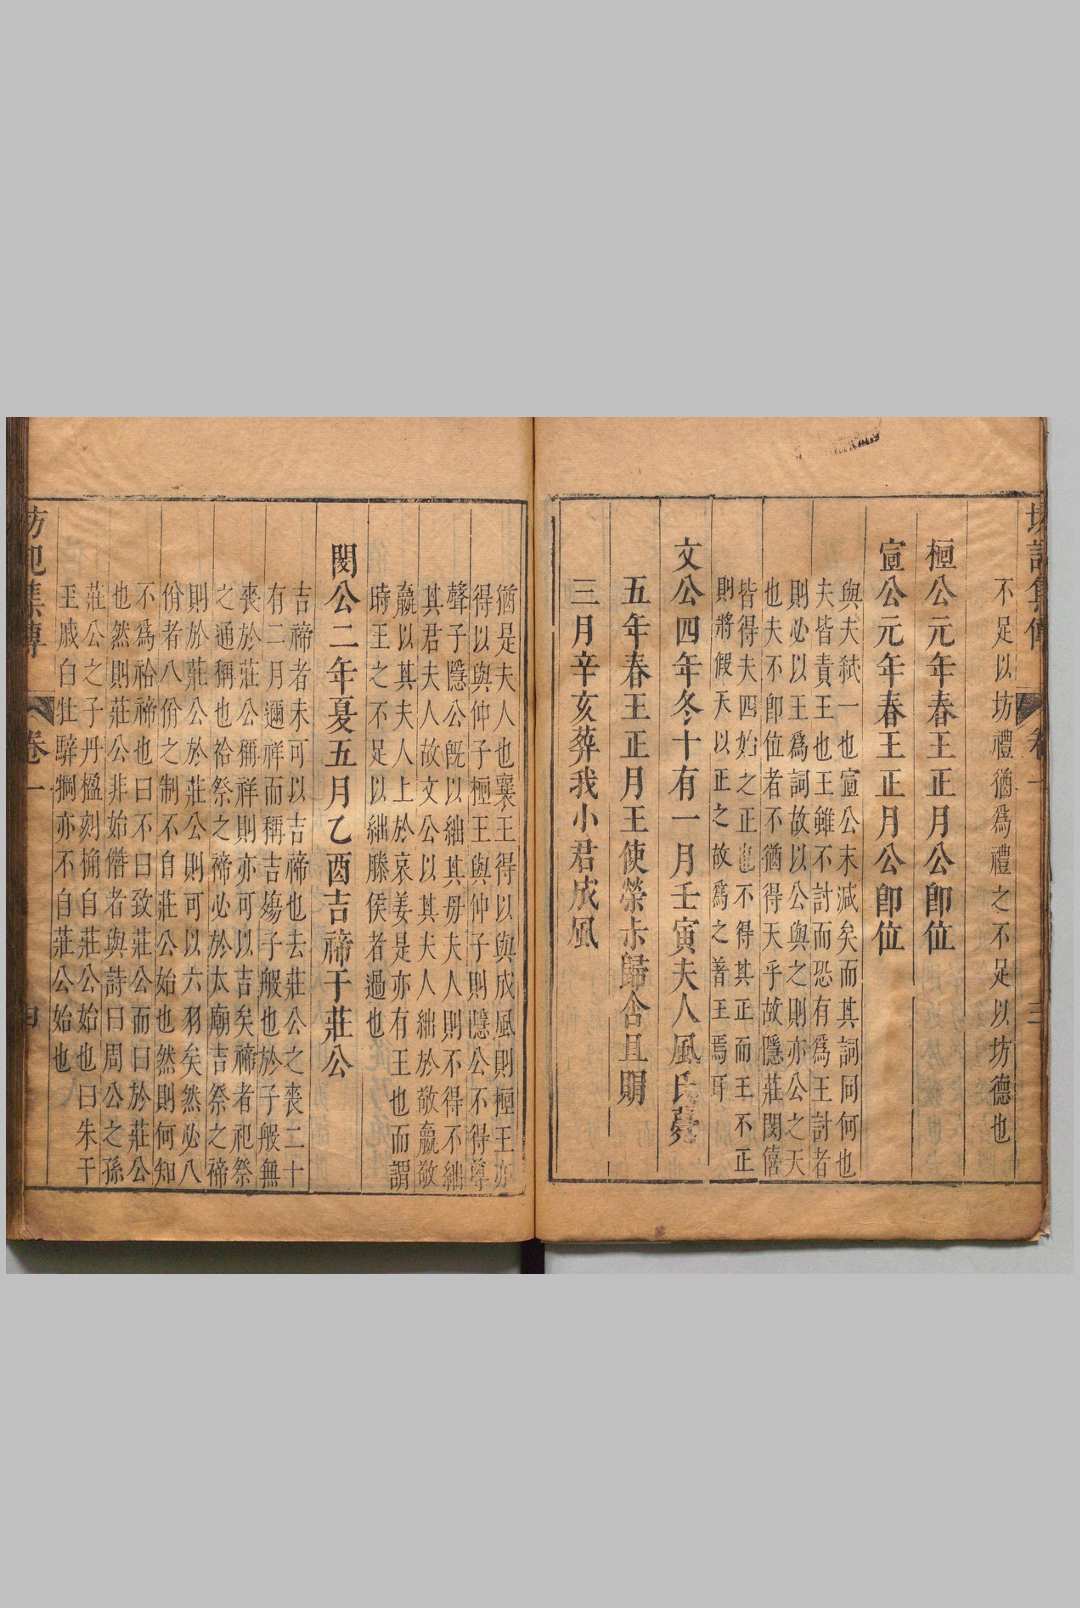 坊記集傳 卷一 三
不足以坊禮猶爲禮之不足以坊德也
桓公元年春王正月公卽位
宣公元年春王正月公卽位
與夫弒一也宣公末減矣而其詞同何也
夫皆責王也王雖不討而恐有爲王討者
則必以王爲詞故以公與之則亦公之天
也夫不卽位者不猶得天乎故隱莊閔僖
皆得夫四始之正也不得其正而王不正
則將假天以正之故爲之著王焉耳
文公四年冬十有一月壬寅夫人風氏薨
五年春王正月王使榮叔歸含且賵
三月辛亥葬我小君成風
猶是夫人也襄王得以與成風則桓王亦
得以與仲子桓王與仲子則隱公不得尊
聲子隱公旣以絀其毋夫人則不得不絀
其君夫人故文公以其夫人絀於敬嬴敬
嬴以其夫人上於哀姜是亦有王也而謂
時王之不足以絀滕侯者過也
閔公二年夏五月乙酉吉禘于莊公
吉禘者未可以吉禘也去莊公之喪二十
有二月邇祥而稱吉殤子般也於子般無
喪於莊公稱祥則亦可以吉矣禘者祀祭
之通稱也祫祭之禘必於太廟吉祭之禘
則於莊公於莊公則可以六羽矣然必八
佾者八佾之制不自莊公始也然則何知
不爲祫禘也曰不曰致莊公而曰於莊公
也然則莊公非始僭者與詩曰周公之孫
莊公之子丹楹刻桷自莊公始也曰朱干
玉戚白牡騂犅亦不自莊公始也
坊記集傳 卷一 四